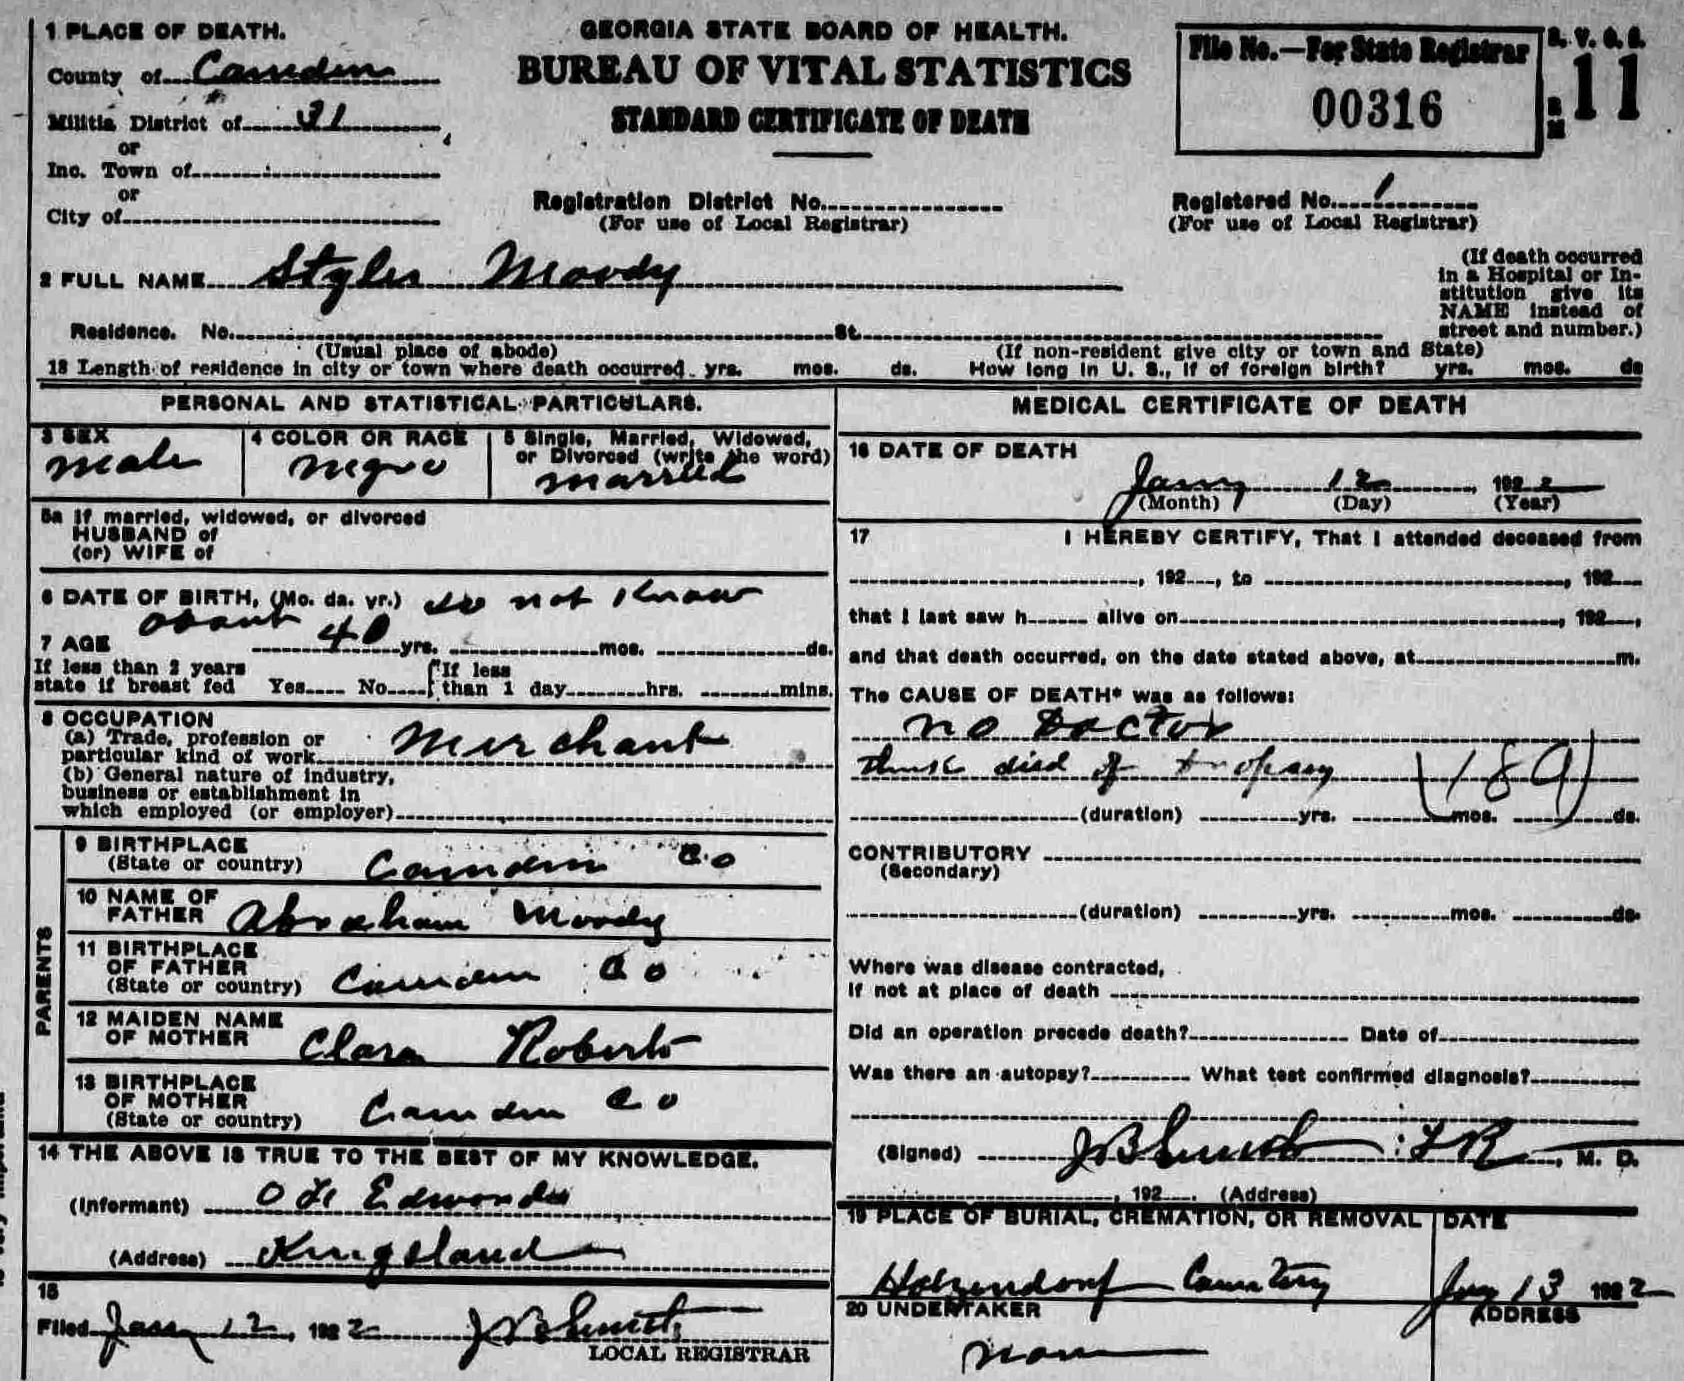 1 PLACE OF DEATH.
County of Camden
Militia District of 31
or
Inc. Town of
or
City of
GEORGIA STATE BOARD OF HEALTH.
BUREAU OF VITAL STATISTICS
STANDARD CERTIFICATE OF DEATH
Registration District No.
(For use of Local Registrar)
File No.—For State Registrar
00316
11
Registered No. 1
(For use of Local Registrar)
2 FULL NAME Styles Moody
(If death occurred
in a Hospital or In-
stitution give its
NAME instead of
street and number.)
Residence. No. St.
(Usual place of abode) (If non-resident give city or town and State)
18 Length of residence in city or town where death occurred yrs. mos. ds. How long in U. S., if of foreign birth? yrs. mos. ds
PERSONAL AND STATISTICAL PARTICULARS.
3 SEX
male
4 COLOR OR RACE
negro
5 Single, Married, Widowed,
or Divorced (write the word)
married
5a If married, widowed, or divorced
HUSBAND of
(or) WIFE of
6 DATE OF BIRTH, (Mo. da. yr.) do not know
7 AGE about 40 yrs. mos. ds.
If less than 2 years
state if breast fed Yes No
If less
than 1 day hrs. mins.
8 OCCUPATION
(a) Trade, profession or
particular kind of work Merchant
(b) General nature of industry,
business or establishment in
which employed (or employer)
PARENTS
9 BIRTHPLACE
(State or country) Camden Co
10 NAME OF
FATHER Abraham Moody
11 BIRTHPLACE
OF FATHER
(State or country) Camden Co
12 MAIDEN NAME
OF MOTHER Clara Roberts
13 BIRTHPLACE
OF MOTHER
(State or country) Camden Co
14 THE ABOVE IS TRUE TO THE BEST OF MY KNOWLEDGE.
(Informant) Edwonds
(Address) Kingsland
15
Filed Jany 12, 1922 J B Smith
LOCAL REGISTRAR
MEDICAL CERTIFICATE OF DEATH
16 DATE OF DEATH
Jany 12, 1922
(Month) (Day) (Year)
17 I HEREBY CERTIFY, That I attended deceased from
, 192 , to , 192
that I last saw h alive on , 192 ,
and that death occurred, on the date stated above, at m.
The CAUSE OF DEATH* was as follows:
no Doctor
think died of dropsey (189)
(duration) yrs. mos. ds.
CONTRIBUTORY
(Secondary)
(duration) yrs. mos. ds.
Where was disease contracted,
if not at place of death
Did an operation precede death? Date of
Was there an autopsy? What test confirmed diagnosis?
(Signed) J B Smith : L R, M. D.
, 192 . (Address)
19 PLACE OF BURIAL, CREMATION, OR REMOVAL
Holzendorf Cemetery
DATE
Jany 13 1922
20 UNDERTAKER
none
ADDRESS